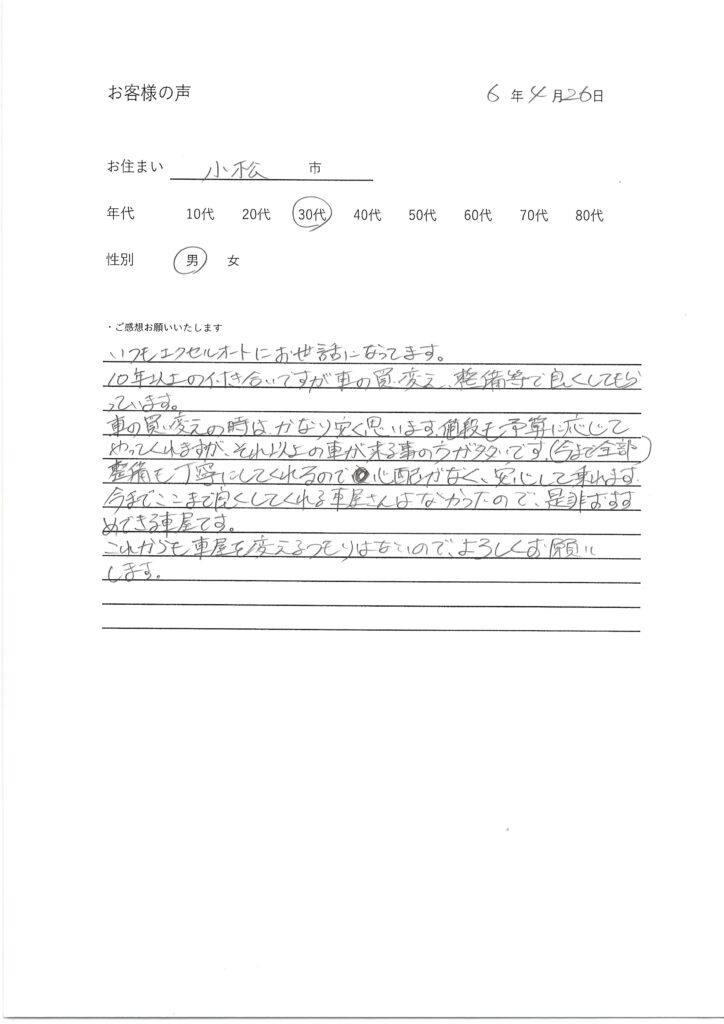 お客様の声 6年4月26日
お住まい 小松 市
年代 10代 20代 30代 40代 50代 60代 70代 80代
性別 男 女
・ご感想お願いいたします
いつもエクセルオートにお世話になってます。
10年以上の付き合いですが車の買い変え、整備等で良くしてもら
っています。
車の買い変えの時は、かなり安く思います。値段も予算に応じて
やってくれますが、それ以上の車が来る事の方がタタです。(今まで全部)
整備も丁寧にしてくれるので心配がなく、安心して乗れます。
今までここまで良くしてくれる車屋さんはなかったので、是非おすす
めできる車屋です。
これからも車屋を変えるつもりはないので、よろしくお願い
します。